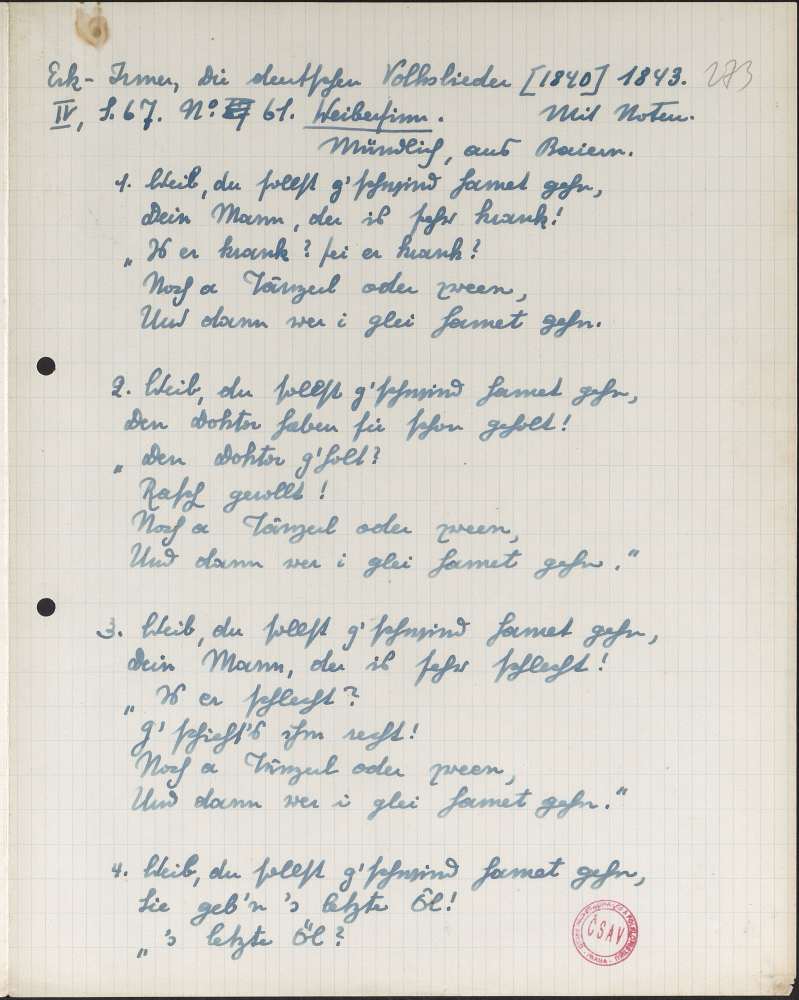 Erk-Irmer, Die deutschen Volkslieder [1840] 1843. 273
IV, S. 67. No. 61. Weibersinn. Mit Noten.
Mündlich, aus Baiern.
1. Weib, du sollst g'schwind hamet gehn,
Dein Mann, der is sehr krank!
„Is er krank? sei er krank?
Noch a Tänzerl oder zween,
Und dann wer i glei hamet gehn.
2. Weib, du sollst g'schwind hamet gehn,
Den Doktor haben sie schon geholt!
„Den Doktor g'holt?
Rasch gerollt!
Noch a Tänzerl oder zween,
Und dann wer i glei hamet gehn."
3. Weib, du sollst g'schwind hamet gehn,
Dein Mann, der is sehr schlecht!
„Is er schlecht?
G'schieht's ihm recht!
Noch a Tänzerl oder zween,
Und dann wer i glei hamet gehn."
4. Weib, du sollst g'schwind hamet gehn,
Sie geb'n 's letzte Öl!
„'s letzte Öl?
ČSAV
PRAHA